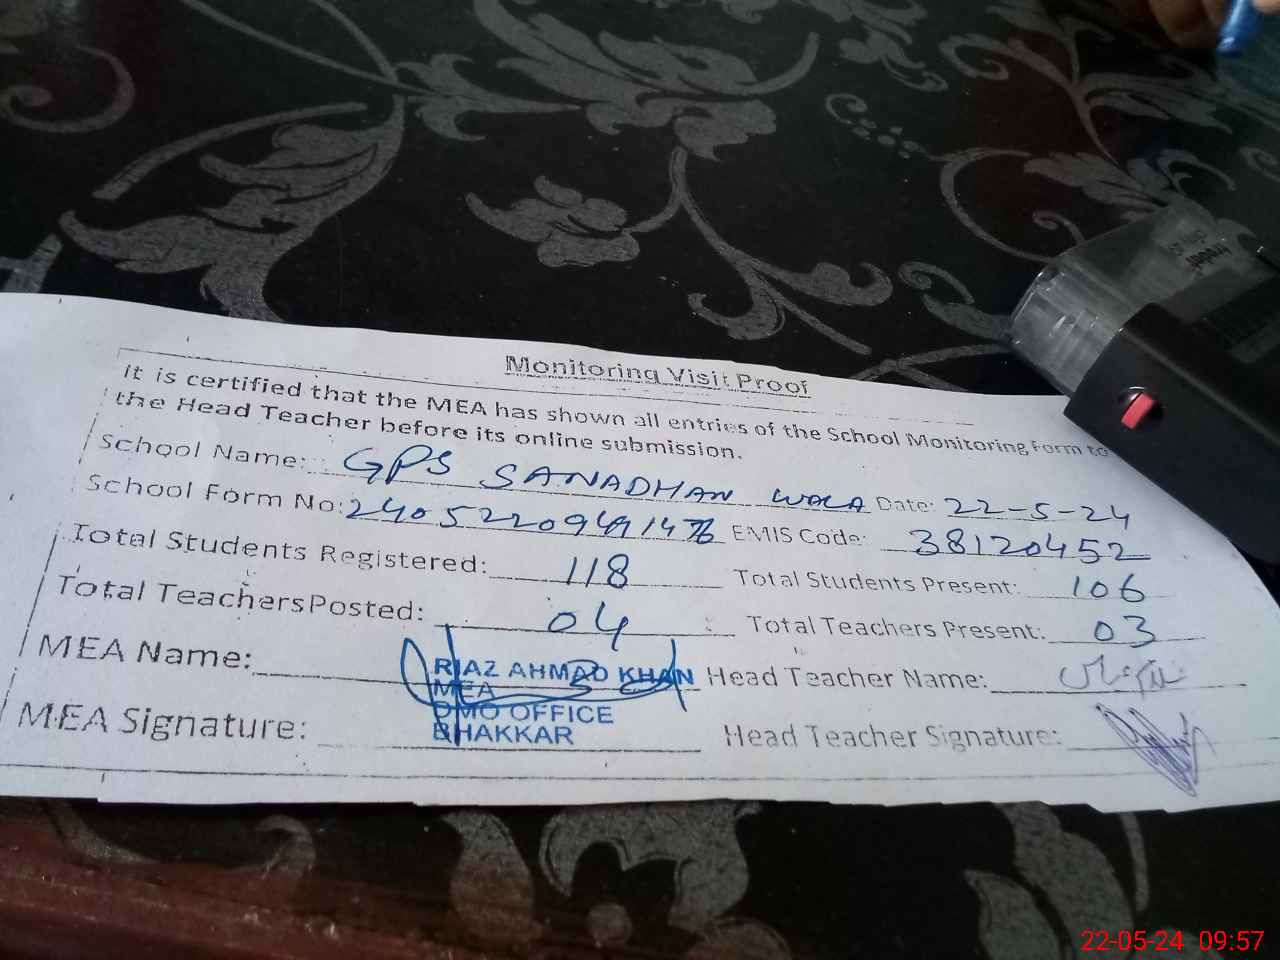 Monitoring Visit Proof
it is certified that the MEA has shown all entries of the School Monitoring Form to
the Head Teacher before its online submission.
School Name: GPS SANADHAN WALA Date: 22-5-24
School Form No: EMIS Code: 38120452
Total Students Registered: 118 Total Students Present: 106
Total TeachersPosted: 04 Total Teachers Present: 03
MEA Name: RIAZ AHMAD KHAN Head Teacher Name:
MEA
DMO OFFICE
MEA Signature: BHAKKAR Head Teacher Signature:
22-05-24 09:57